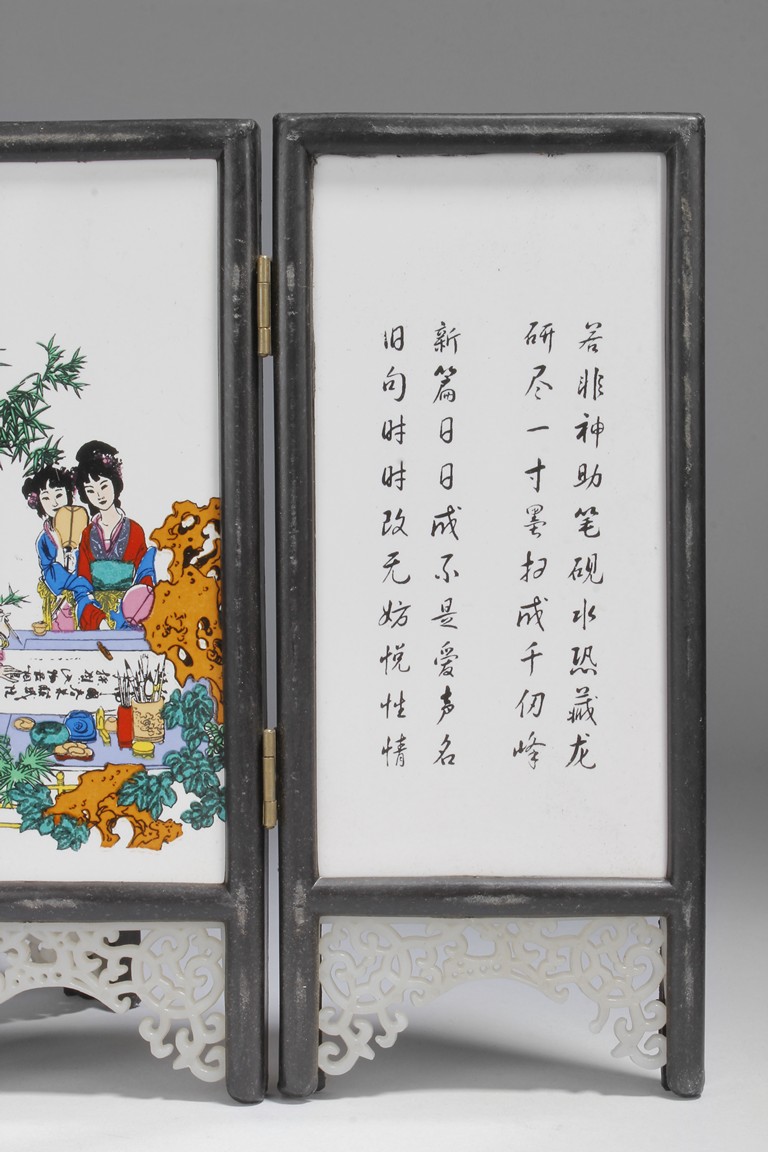 若非神助笔砚水恐藏龙
研尽一寸墨扫成千仞峰
新篇日日成不是爱声名
旧句时时改无妨悦性情